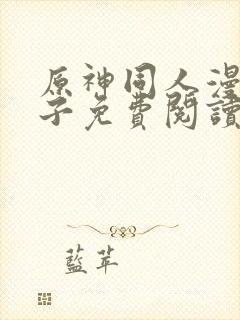 原神同人漫
子免費閱讀
藍苹